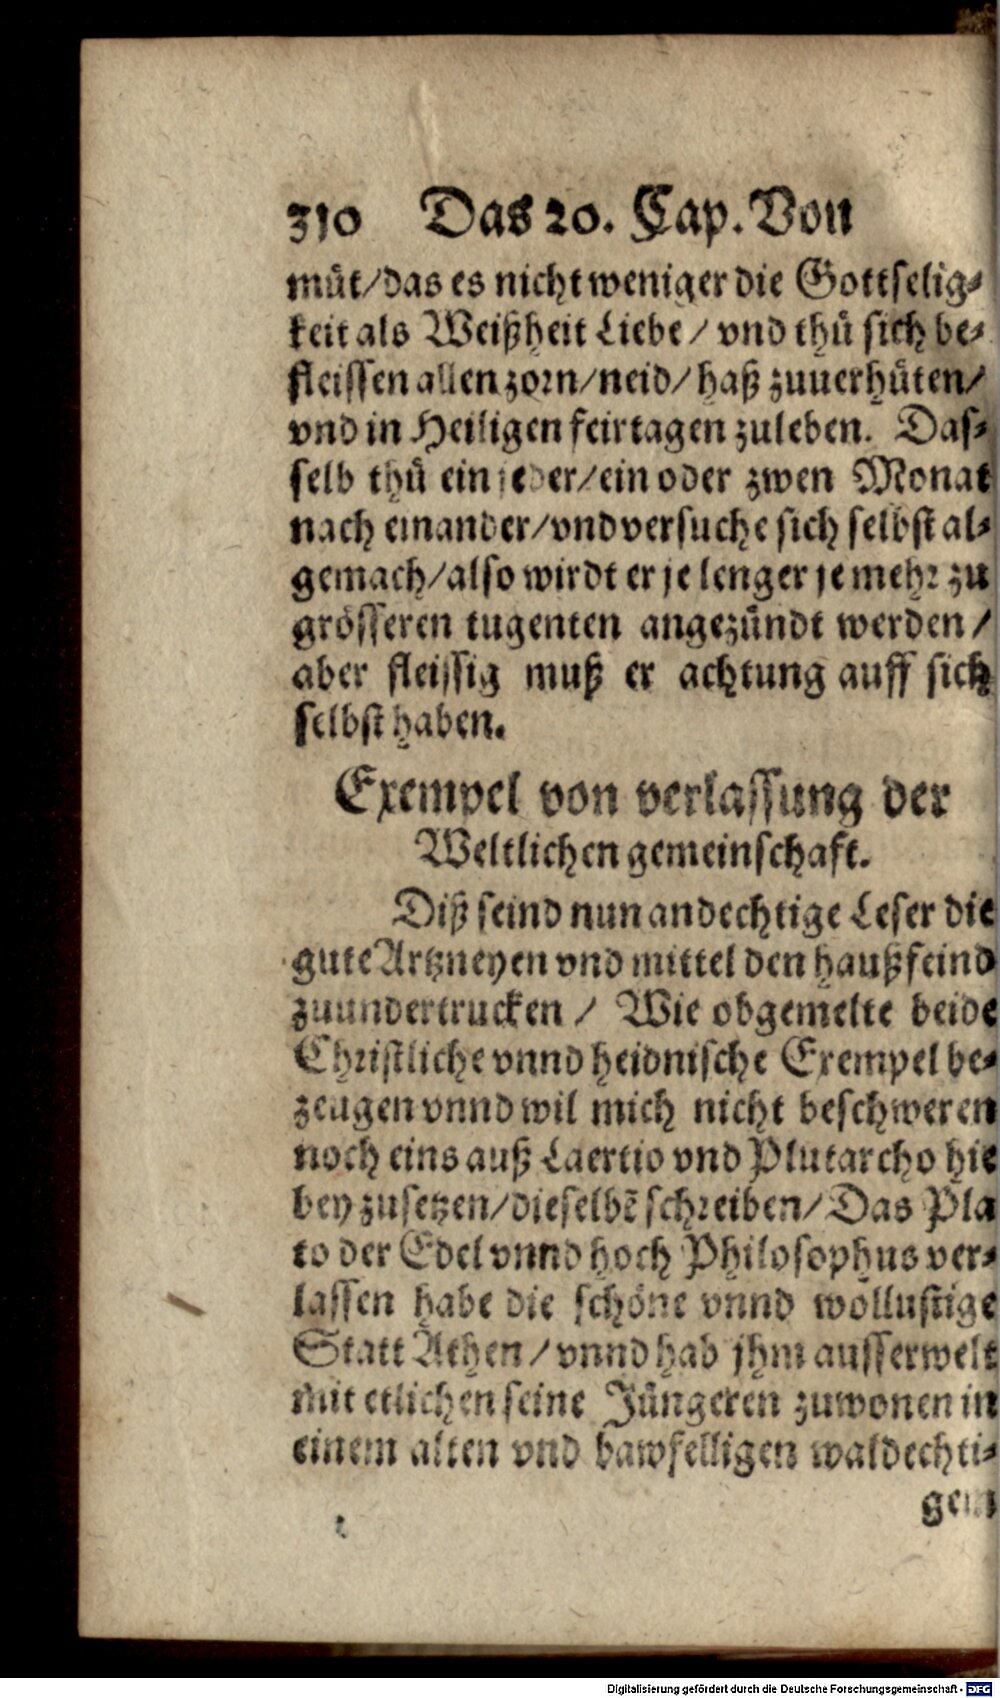 310 Das 20. Cap. Von
muͤt/das es nicht weniger die Gottselig-
keit als Weißheit Liebe/ vnd thuͤ sich be-
fleissen allen zorn/neid/ haß zuuerhuͤten/
vnd in Heiligen feirtagen zuleben. Das-
selb thuͤ ein jeder/ein oder zwen Monat
nach einander/vnd versuche sich selbst al-
gemach/also wirdt er je lenger je mehr zu
groͤsseren tugenten angezuͤndt werden/
aber fleissig muß er achtung auff sich
selbst haben.
Exempel von verlassung der
Weltlichen gemeinschaft.
Diß seind nun andechtige Leser die
gute Artzneyen vnd mittel den haußfeind
zuundertrucken / Wie obgemelte beide
Christliche vnnd heidnische Exempel be-
zeugen vnnd wil mich nicht beschweren
noch eins auß Laertio vnd Plutarcho hie
bey zusetzen/dieselbẽ schreiben/Das Pla
to der Edel vnnd hoch Philosophus ver-
lassen habe die schoͤne vnnd wollustige
Statt Athen/vnnd hab jhm ausserwelt
mit etlichen seine Juͤngeren zuwonen in
einem alten vnd bawfelligen waldechti-
gem
Digitalisierung gefördert durch die Deutsche Forschungsgemeinschaft - DFG